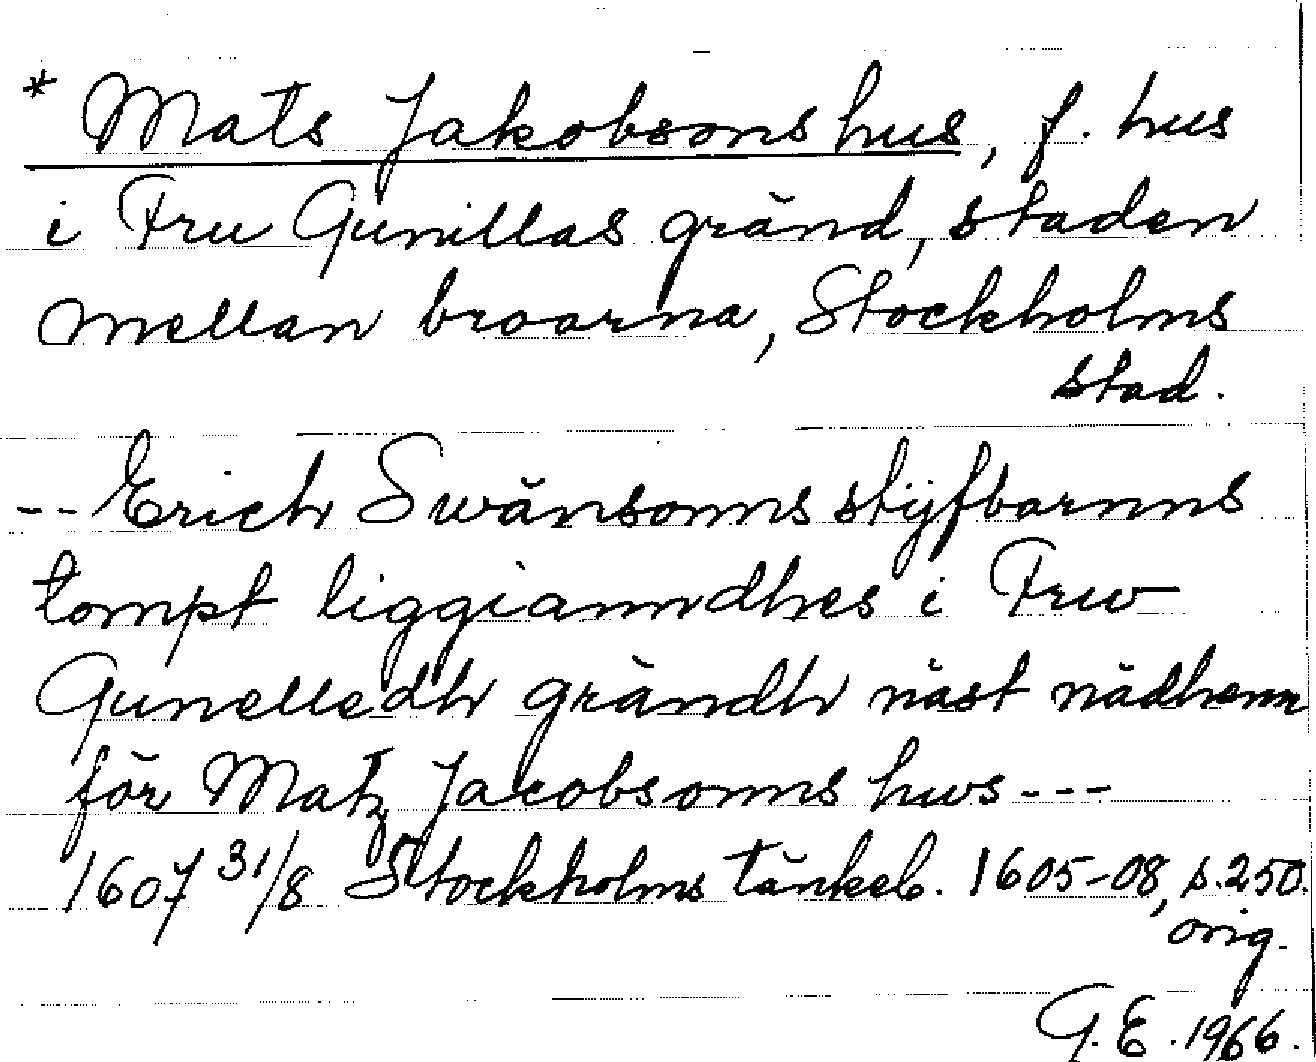 * Mats Jakobsons hus, f. hus
i Fru Gunillas gränd, staden
mellan broarna, Stockholms
stad.
-- Erich Swänsonns stÿfbarnns
tompt liggianndhes i Frw
Gunelledh grändh näst nädhenn
för Matz Jacobsonns hws ---
1607 31/8 Stockholms tänkeb. 1605-08, s. 250.
orig.
G. E. 1966.